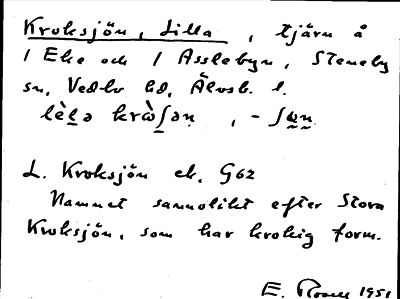 Kroksjön, Lilla, tjärn å
1 Eke och 1 Asslebyn, Steneby
sn, Vedbo hd, Älvsb. l.
L. Kroksjön ek. G62
Namnet sannolikt efter Stora
Kroksjön, som har krokig form.
E. 1951